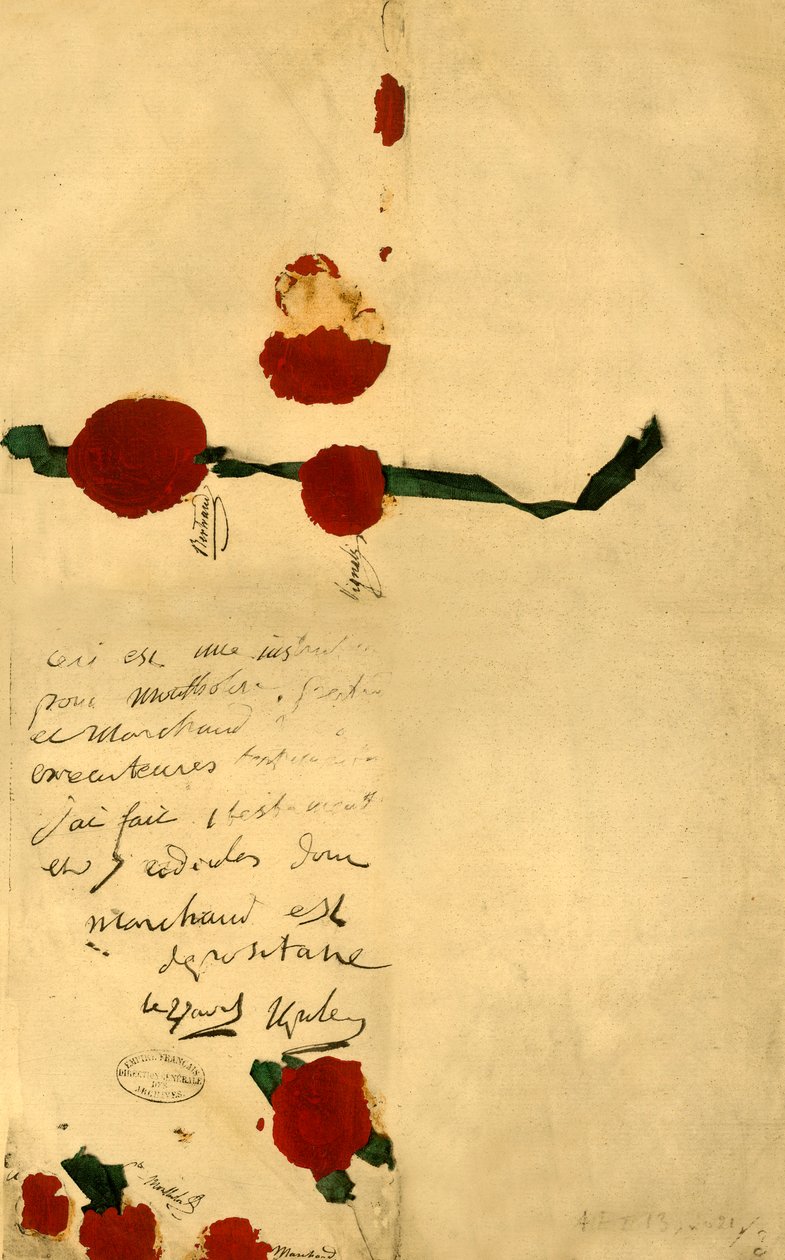 Bertrand
Vignali
ceci est une instruction
pour montholon. Bertrand
et Marchand mes
executeures testamentaires
j'ai fait 1 testament
et 7 codiciles dont
marchand est
depositaire
le 27 avril Napoleon
EMPIRE FRANÇAIS
DIRECTION GÉNÉRALE
DES
ARCHIVES.
Montholon
Marchand